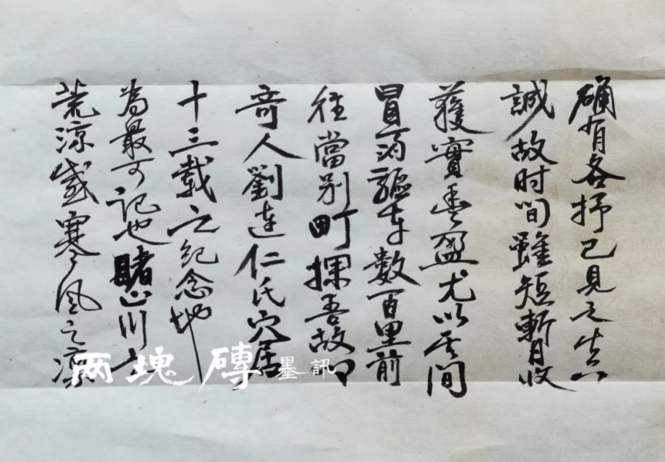 確有各抒己見之
誠故时间雖短暫收
獲實豐盈尤以其间
冒雨驅车數百里前
往當别町探吾故
奇人劉连仁氏穴居
十三載之纪念地
為最可記也睹山川之
荒涼感寒风之凛
两塊磚墨訊